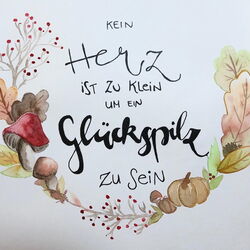 KEIN
Herz
IST ZU KLEIN
UM EIN
Glückspilz
ZU SEIN